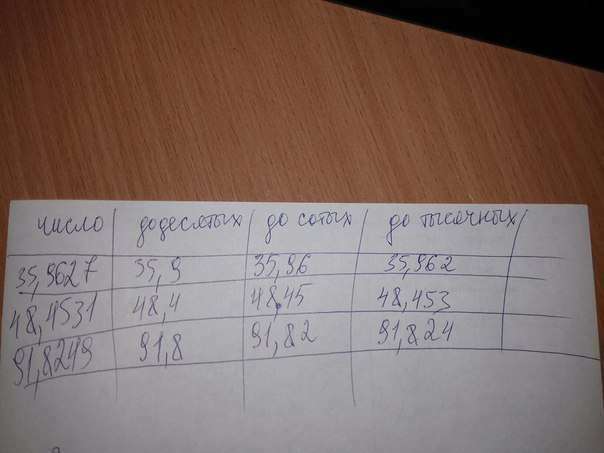 число до десятых до сотых до тысячных
35,9627 35,9 35,96 35,962
48,4531 48,4 48,45 48,453
91,8249 91,8 91,82 91,824